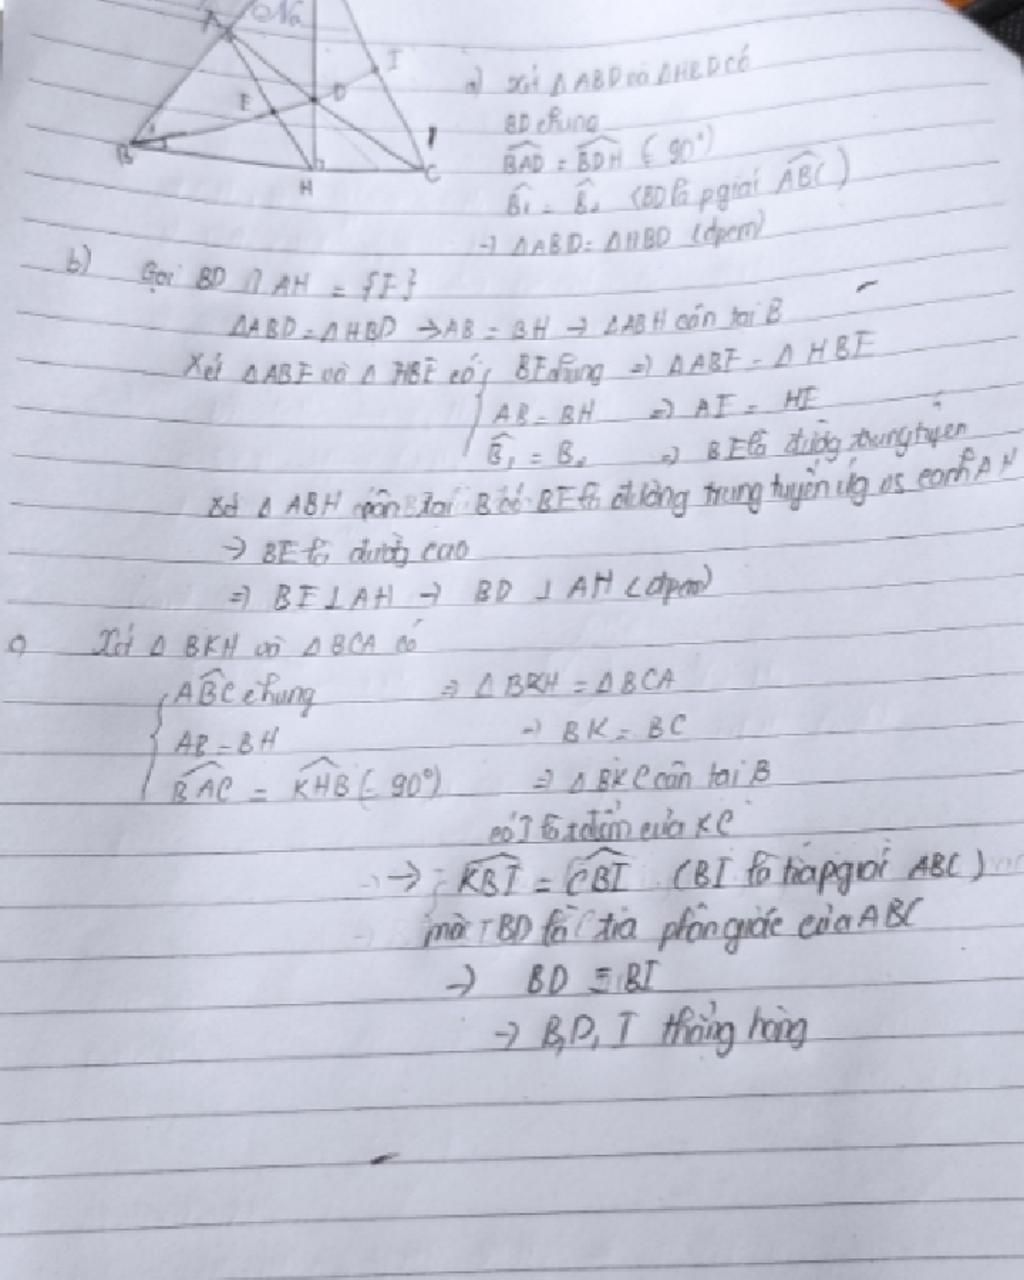 A
I
E
D
B
C
H
a) Xét Δ ABD và Δ HBD có
BD chung
BAD = BDH (= 90°)
B₁ = B₂ (BD là p giác ABC)
→ Δ ABD = Δ HBD (đpcm)
b) Gọi BD ∩ AH = {E}
Δ ABD = Δ HBD → AB = BH → Δ ABH cân tại B
Xét Δ ABE và Δ HBE có { BE chung ⇒ Δ ABE = Δ HBE
AB = BH ⇒ AE = HE
B₁ = B₂ ⇒ BE là đường trung tuyến
Xét Δ ABH cân tại B có BE là đường trung tuyến ứng vs cạnh AH
→ BE là đường cao
⇒ BE ⊥ AH → BD ⊥ AH (đpcm)
c) Xét Δ BKH và Δ BCA có
ABC chung ⇒ Δ BKH = Δ BCA
AB = BH → BK = BC
BAC = KHB (= 90°) ⇒ Δ BKC cân tại B
có I là t điểm của KC
→ KBI = CBI (BI là ABC)
mà BD là tia phân giác của ABC
→ BD ≡ BI
→ B, D, I thẳng hàng